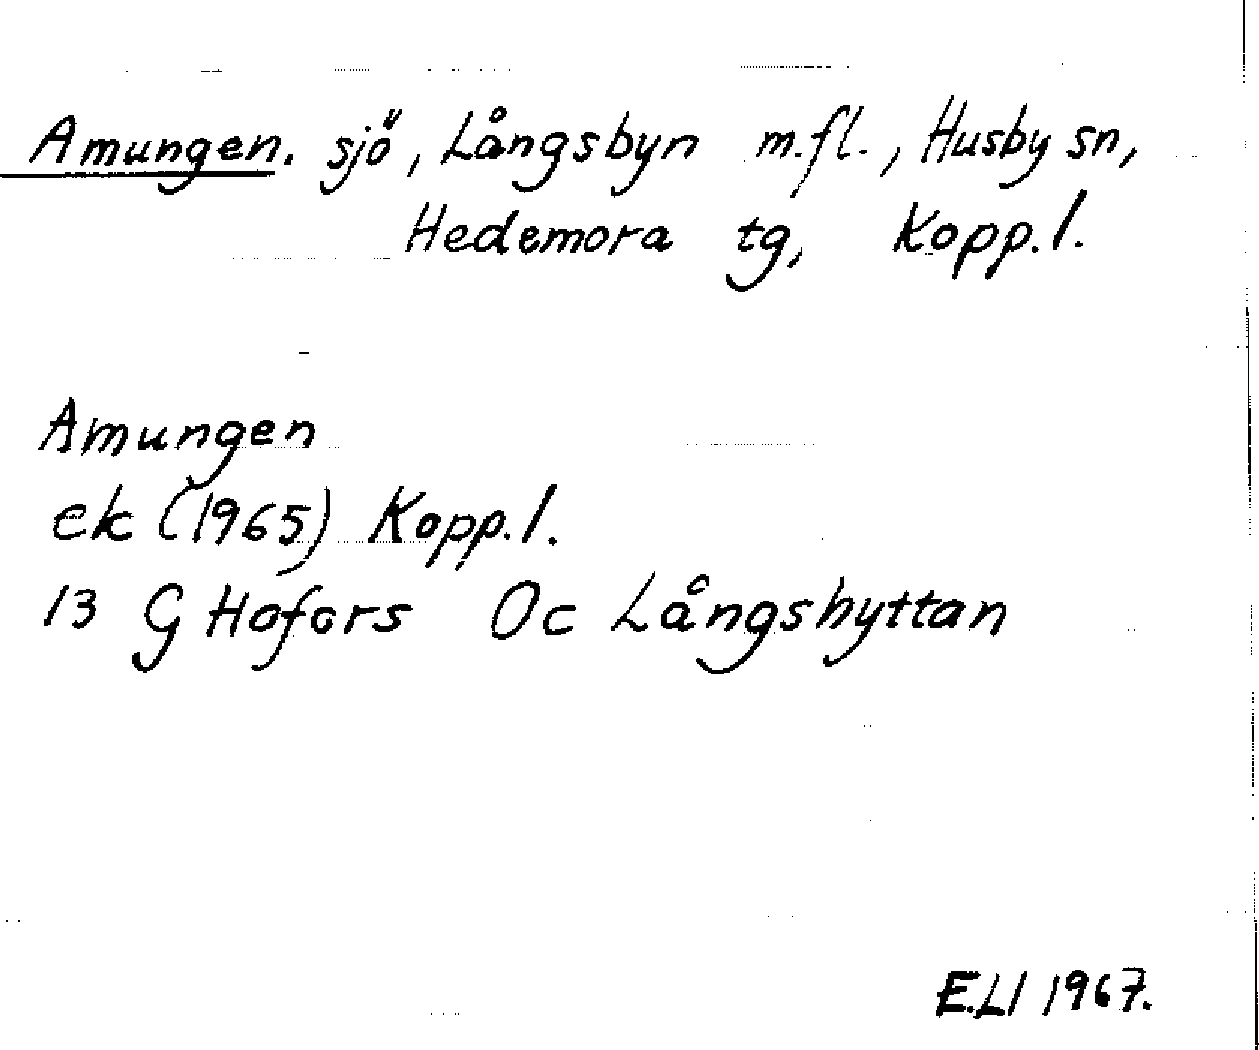 Amungen. sjö, Långsbyn m.fl., Husby sn,
Hedemora tg, Kopp.l.
Amungen
ek (1965) Kopp.l.
13 G Hofors Oc Långshyttan
E.Ll 1967.